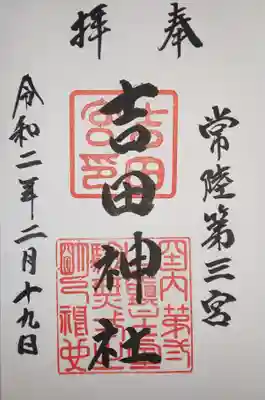 奉拝
常陸第三宮
吉田神社
令和二年二月十九日